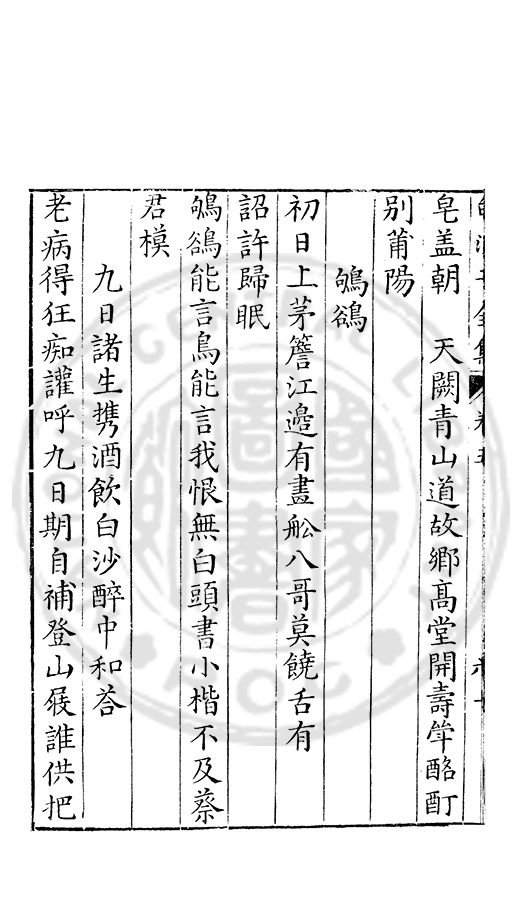 皂盖朝　天闕青山道故鄉髙堂開壽斝酩酊
别莆陽
鴝鵒
初日上茅簷江邉有畫舩八哥莫饒舌有
詔許歸眠
鴝鵒能言鳥能言我恨無白頭書小楷不及蔡
君模
九日諸生携酒飲白沙醉中和荅
老病得狂痴讙呼九日期自補登山屐誰供把